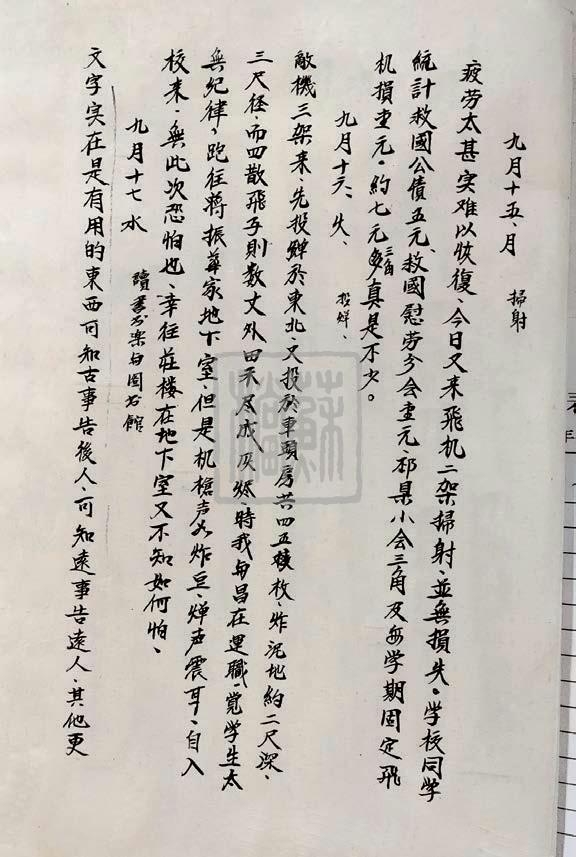 九月十五、月 掃射
疲劳太甚实难以恢復、今日又来飛机二架掃射、並無損失。学校同学
統計救國公債五元、救國慰劳分会壹元、祁県小会三角及每学期固定飛
机損壹元。約七元三角多真是不少。
九月十六、火、 投弹、
敵機三架来、先投弹於東北、又投於車頭房共四五枚、炸泥地約二尺深、
三尺径、而四散飛子則数丈外田禾尽成灰烬、時我与昌在運職、覚学生太
無纪律、跑往蒋振華家地下室、但是机槍声如炸豆、弹声震耳、自入
校来、無此次恐怕也、幸往莊楼在地下室又不知如何怕、
九月十七 水 讀書の楽与图书館
文字实在是有用的東西可知古事告後人、可知遠事告遠人、其他更